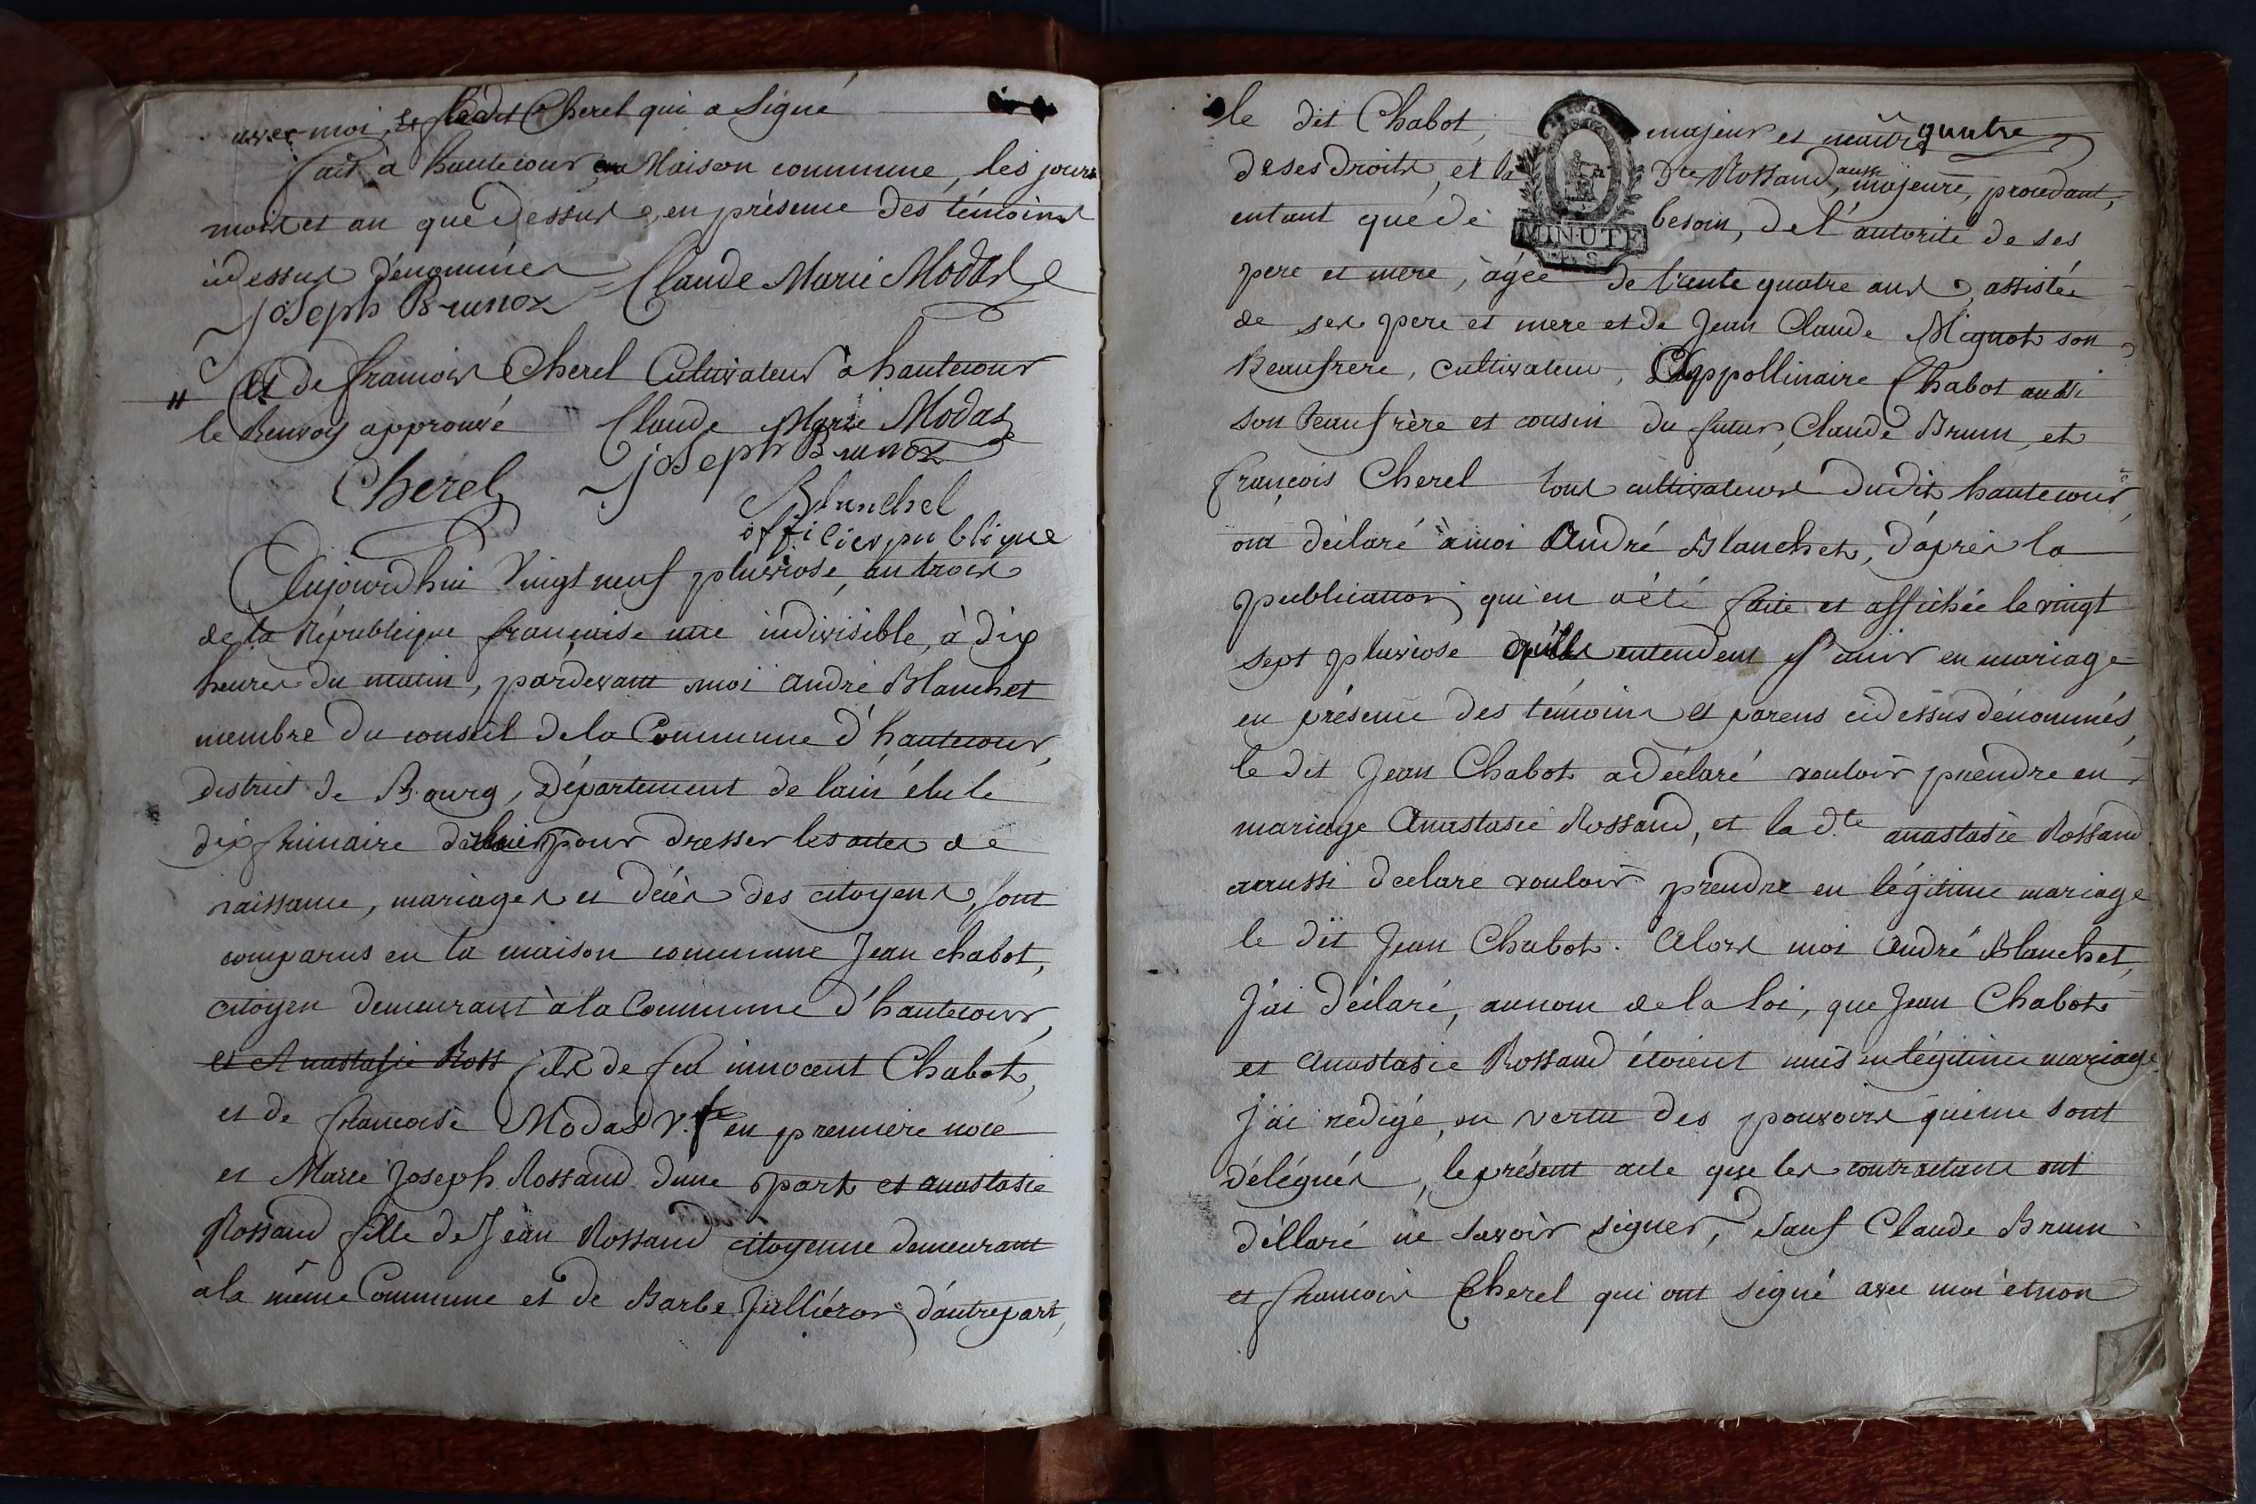 avec moi, et ledit Cherel qui a signé
fait à hautecour en Maison commune, les jours
mois et an que dessus, en présence des témoins
cidessus dénommés Claude Marie Modas
Joseph Brunoz
" et de françois Cherel Cultivateur à hautecour
le Renvoy approuvé Claude Marie Modas
Joseph Brunoz
Cherel
Blanchet
officier publique
Aujourdhui Vingt neuf pluviose, an trois
de la République française une indivisible, à dix
heures du matin, pardevant moi andré Blanchet
membre du conseil de la Commune d'hautecour,
district de Bourg, Département de lain élu le
dix frimaire pour dresser les actes de
naissance, mariages et décès des citoyens, sont
comparus en la maison commune Jean chabot,
citoyen demeurant à la Commune d'hautecour,
et Anastasie Ross fils de feu innocent Chabot,
et de francoise Modas v.fe en premiere noce
et Marie Joseph Rossand dune part et anastasie
Rossand fille de Jean Rossand citoyenne demeurant
à la même Commune et de Barbe Julliéron dautre part,
quatre
le dit Chabot, majeur et maître
de ses droits, et la dte Rossand, aussi majeure, procedant,
entant que de besoin, de l'autorité de ses
MINUTE
pere et mere, agée de trente quatre ans, assistée
de ses pere et mere et de Jean Claude Mignot son
Beaufrere, cultivateur, Appollinaire Chabot aussi
son beaufrère et cousin du futur, Claude Brun, et
françois Cherel tous cultivateurs dudit hautecour,
ont déclaré à moi André Blanchet, d'après la
publication qui en a été faite et affichée le vingt
sept pluviose qu'ils entendent s'unir en mariage
en présence des témoins et parens cidessus dénommés,
le dit Jean Chabot a déclaré vouloir prendre en
mariage Anastasie Rossand, et la d.te anastasie Rossand
a aussi declaré vouloir prendre en légitime mariage
le dit Jean Chabot. Alors moi André Blanchet,
J'ai déclaré, au nom de la loi, que Jean Chabot
et Anastasie Rossand étoient unis en légitime mariage.
J'ai rédigé, en vertu des pouvoirs qui me sont
délégués, le présent acte que les contractans ont
déllaré ne savoir signer, sauf Claude Brun
et francois Cherel qui ont signé avec moi et non